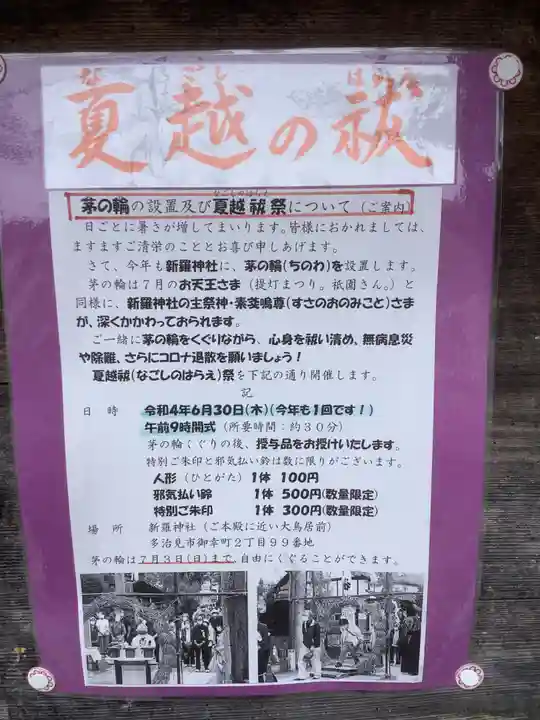 夏越の祓
なごしのはらえ
茅の輪の設置及び夏越祓祭について（ご案内）
日ごとに暑さが増してまいります。皆様におかれましては、
ますますご清栄のこととお喜び申しあげます。
さて、今年も新羅神社に、茅の輪(ちのわ)を設置します。
茅の輪は７月のお天王さま（提灯まつり。祇園さん。）と
同様に、新羅神社の主祭神・素戔嗚尊(すさのおのみこと)さま
が、深くかかわっておられます。
ご一緒に茅の輪をくぐりながら、心身を祓い清め、無病息災
や除難、さらにコロナ退散を願いましょう！
夏越祓(なごしのはらえ)祭を下記の通り開催します。
記
日　時　令和4年6月30日(木)(今年も1回です！)
午前9時開式（所要時間：約３０分）
茅の輪くぐりの後、授与品をお授けいたします。
特別ご朱印と邪気払い鈴は数に限りがございます。
人形（ひとがた）1体　100円
邪気払い鈴　1体　500円(数量限定)
特別ご朱印　1体　300円(数量限定)
場　所　新羅神社（ご本殿に近い大鳥居前）
多治見市御幸町２丁目９９番地
茅の輪は７月３日(日)まで、自由にくぐることができます。